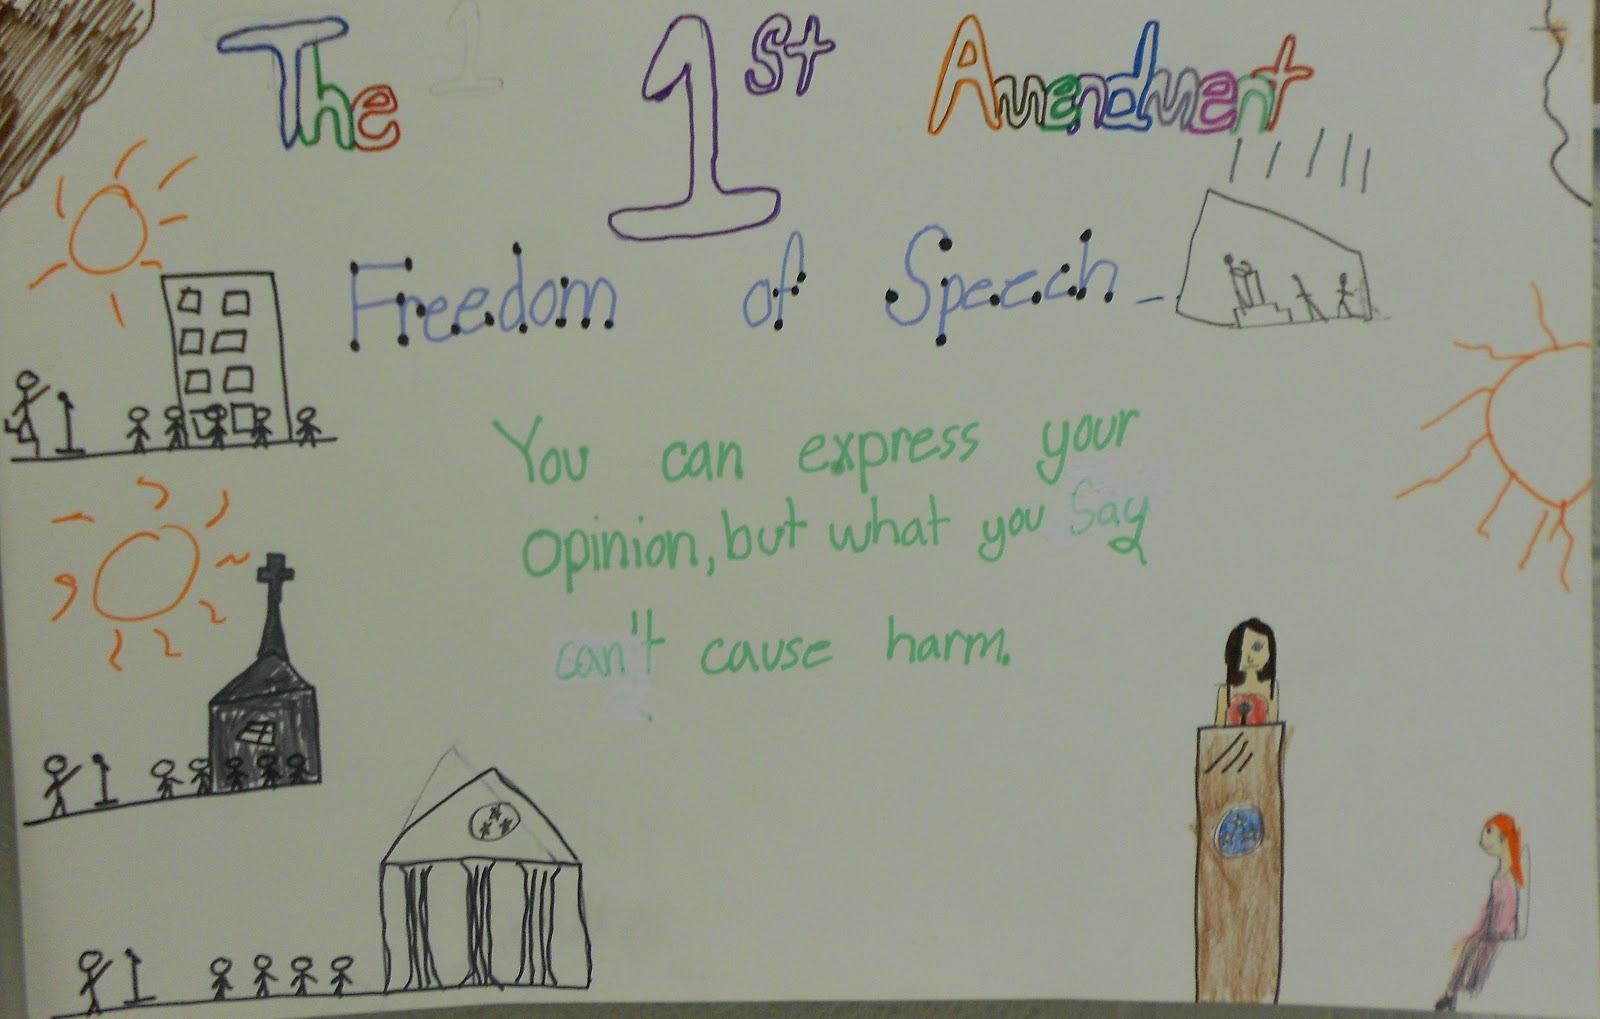 The 1st Amendment
Freedom of Speech
You can express your
opinion, but what you say
can't cause harm.